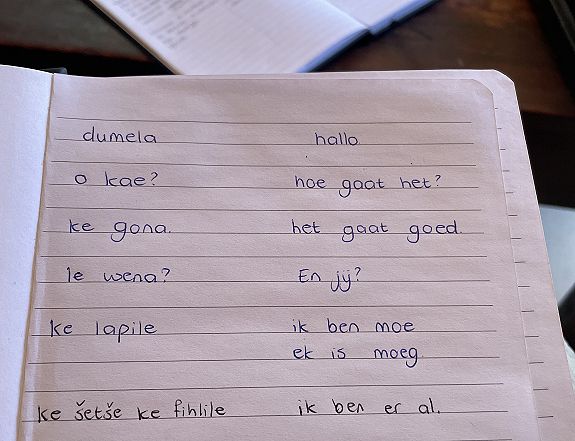 dumela hallo
o kae? hoe gaat het?
ke gona. het gaat goed.
le wena? En jij?
ke lapile ik ben moe
ek is moeg.
ke šetše ke fihlile ik ben er al.